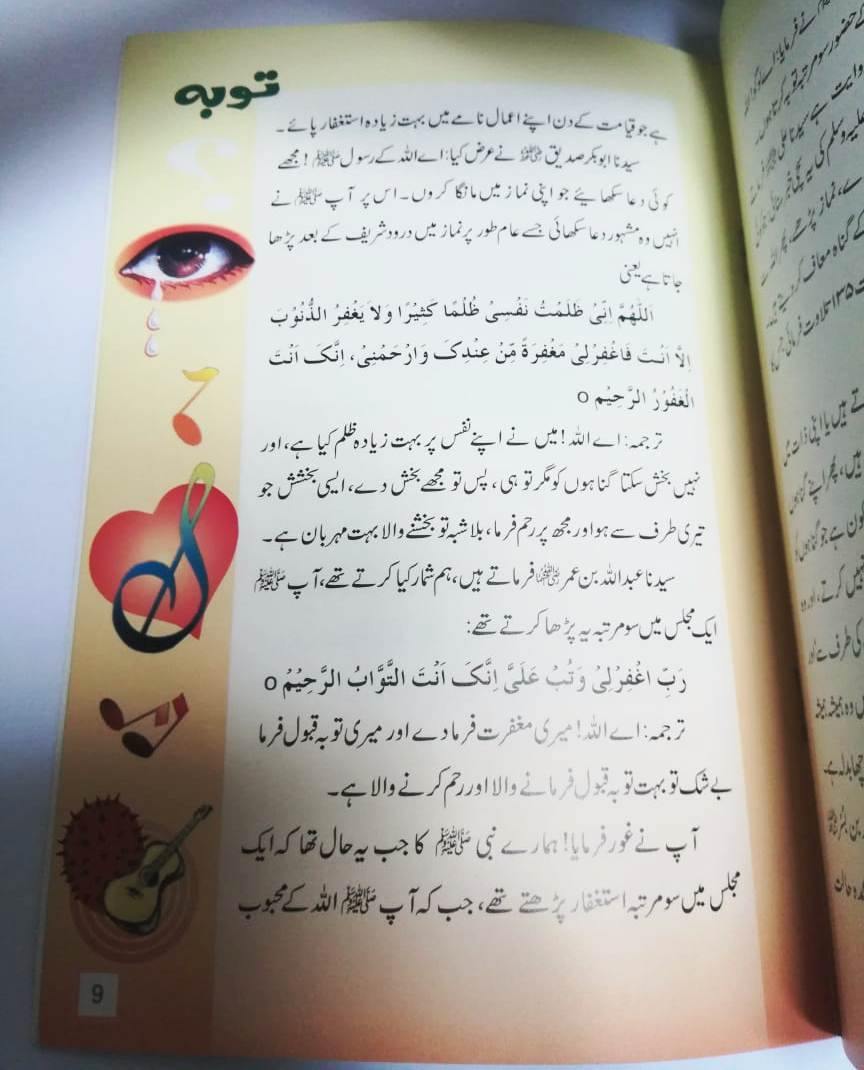 توبہ
ہے جو قیامت کے دن اپنے اعمال نامے میں بہت زیادہ استغفار پائے۔
سیدنا ابوبکر صدیق رضی اللہ عنہ نے عرض کیا: اے اللہ کے رسول ﷺ! مجھے
کوئی دعا سکھائیے جو اپنی نماز میں مانگا کروں۔ اس پر آپ ﷺ نے
انہیں وہ مشہور دعا سکھائی جسے عام طور پر نماز میں درود شریف کے بعد پڑھا
جاتا ہے یعنی
اَللّٰھُمَّ اِنِّیْ ظَلَمْتُ نَفْسِیْ ظُلْمًا کَثِیْرًا وَلَا یَغْفِرُ الذُّنُوْبَ
اِلَّا اَنْتَ فَاغْفِرْلِیْ مَغْفِرَةً مِّنْ عِنْدِکَ وَارْحَمْنِیْ، اِنَّکَ اَنْتَ
الْغَفُوْرُ الرَّحِیْمُ o
ترجمہ: اے اللہ! میں نے اپنے نفس پر بہت زیادہ ظلم کیا ہے، اور
نہیں بخش سکتا گناہوں کو مگر تو ہی، پس تو مجھے بخش دے، ایسی بخشش جو
تیری طرف سے ہو اور مجھ پر رحم فرما، بلاشبہ تو بخشنے والا بہت مہربان ہے۔
سیدنا عبداللہ بن عمر رضی اللہ عنہما فرماتے ہیں، ہم شمار کیا کرتے تھے، آپ ﷺ
ایک مجلس میں سو مرتبہ یہ پڑھا کرتے تھے:
رَبِّ اغْفِرْلِیْ وَتُبْ عَلَیَّ اِنَّکَ اَنْتَ التَّوَّابُ الرَّحِیْمُ o
ترجمہ: اے اللہ! میری مغفرت فرما دے اور میری توبہ قبول فرما
بے شک تو بہت توبہ قبول فرمانے والا اور رحم کرنے والا ہے۔
آپ نے غور فرمایا! ہمارے نبی ﷺ کا جب یہ حال تھا کہ ایک
مجلس میں سو مرتبہ استغفار پڑھتے تھے، جب کہ آپ ﷺ اللہ کے محبوب
9